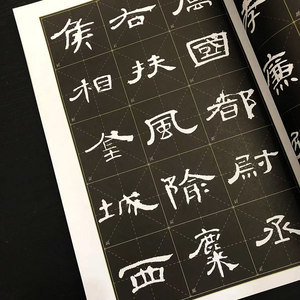 孝廉
屬國都尉丞
右扶風隃麋
侯相金城西